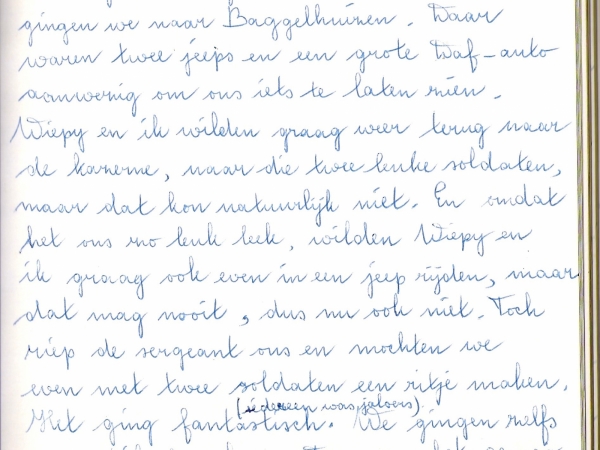 gingen we naar Baggelhuizen. Daar
waren twee jeeps en een grote Daf-auto
aanwezig om ons iets te laten zien.
Wiepy en ik wilden graag weer terug naar
de kazerne, naar die twee leuke soldaten,
maar dat kon natuurlijk niet. En omdat
het ons zo leuk leek, wilden Wiepy en
ik graag ook even in een jeep rijden, maar
dat mag nooit, dus nu ook niet. Toch
riep de sergeant ons en mochten we
even met twee soldaten een ritje maken.
(iedereen was jaloers)
Het ging fantastisch. We gingen zelfs